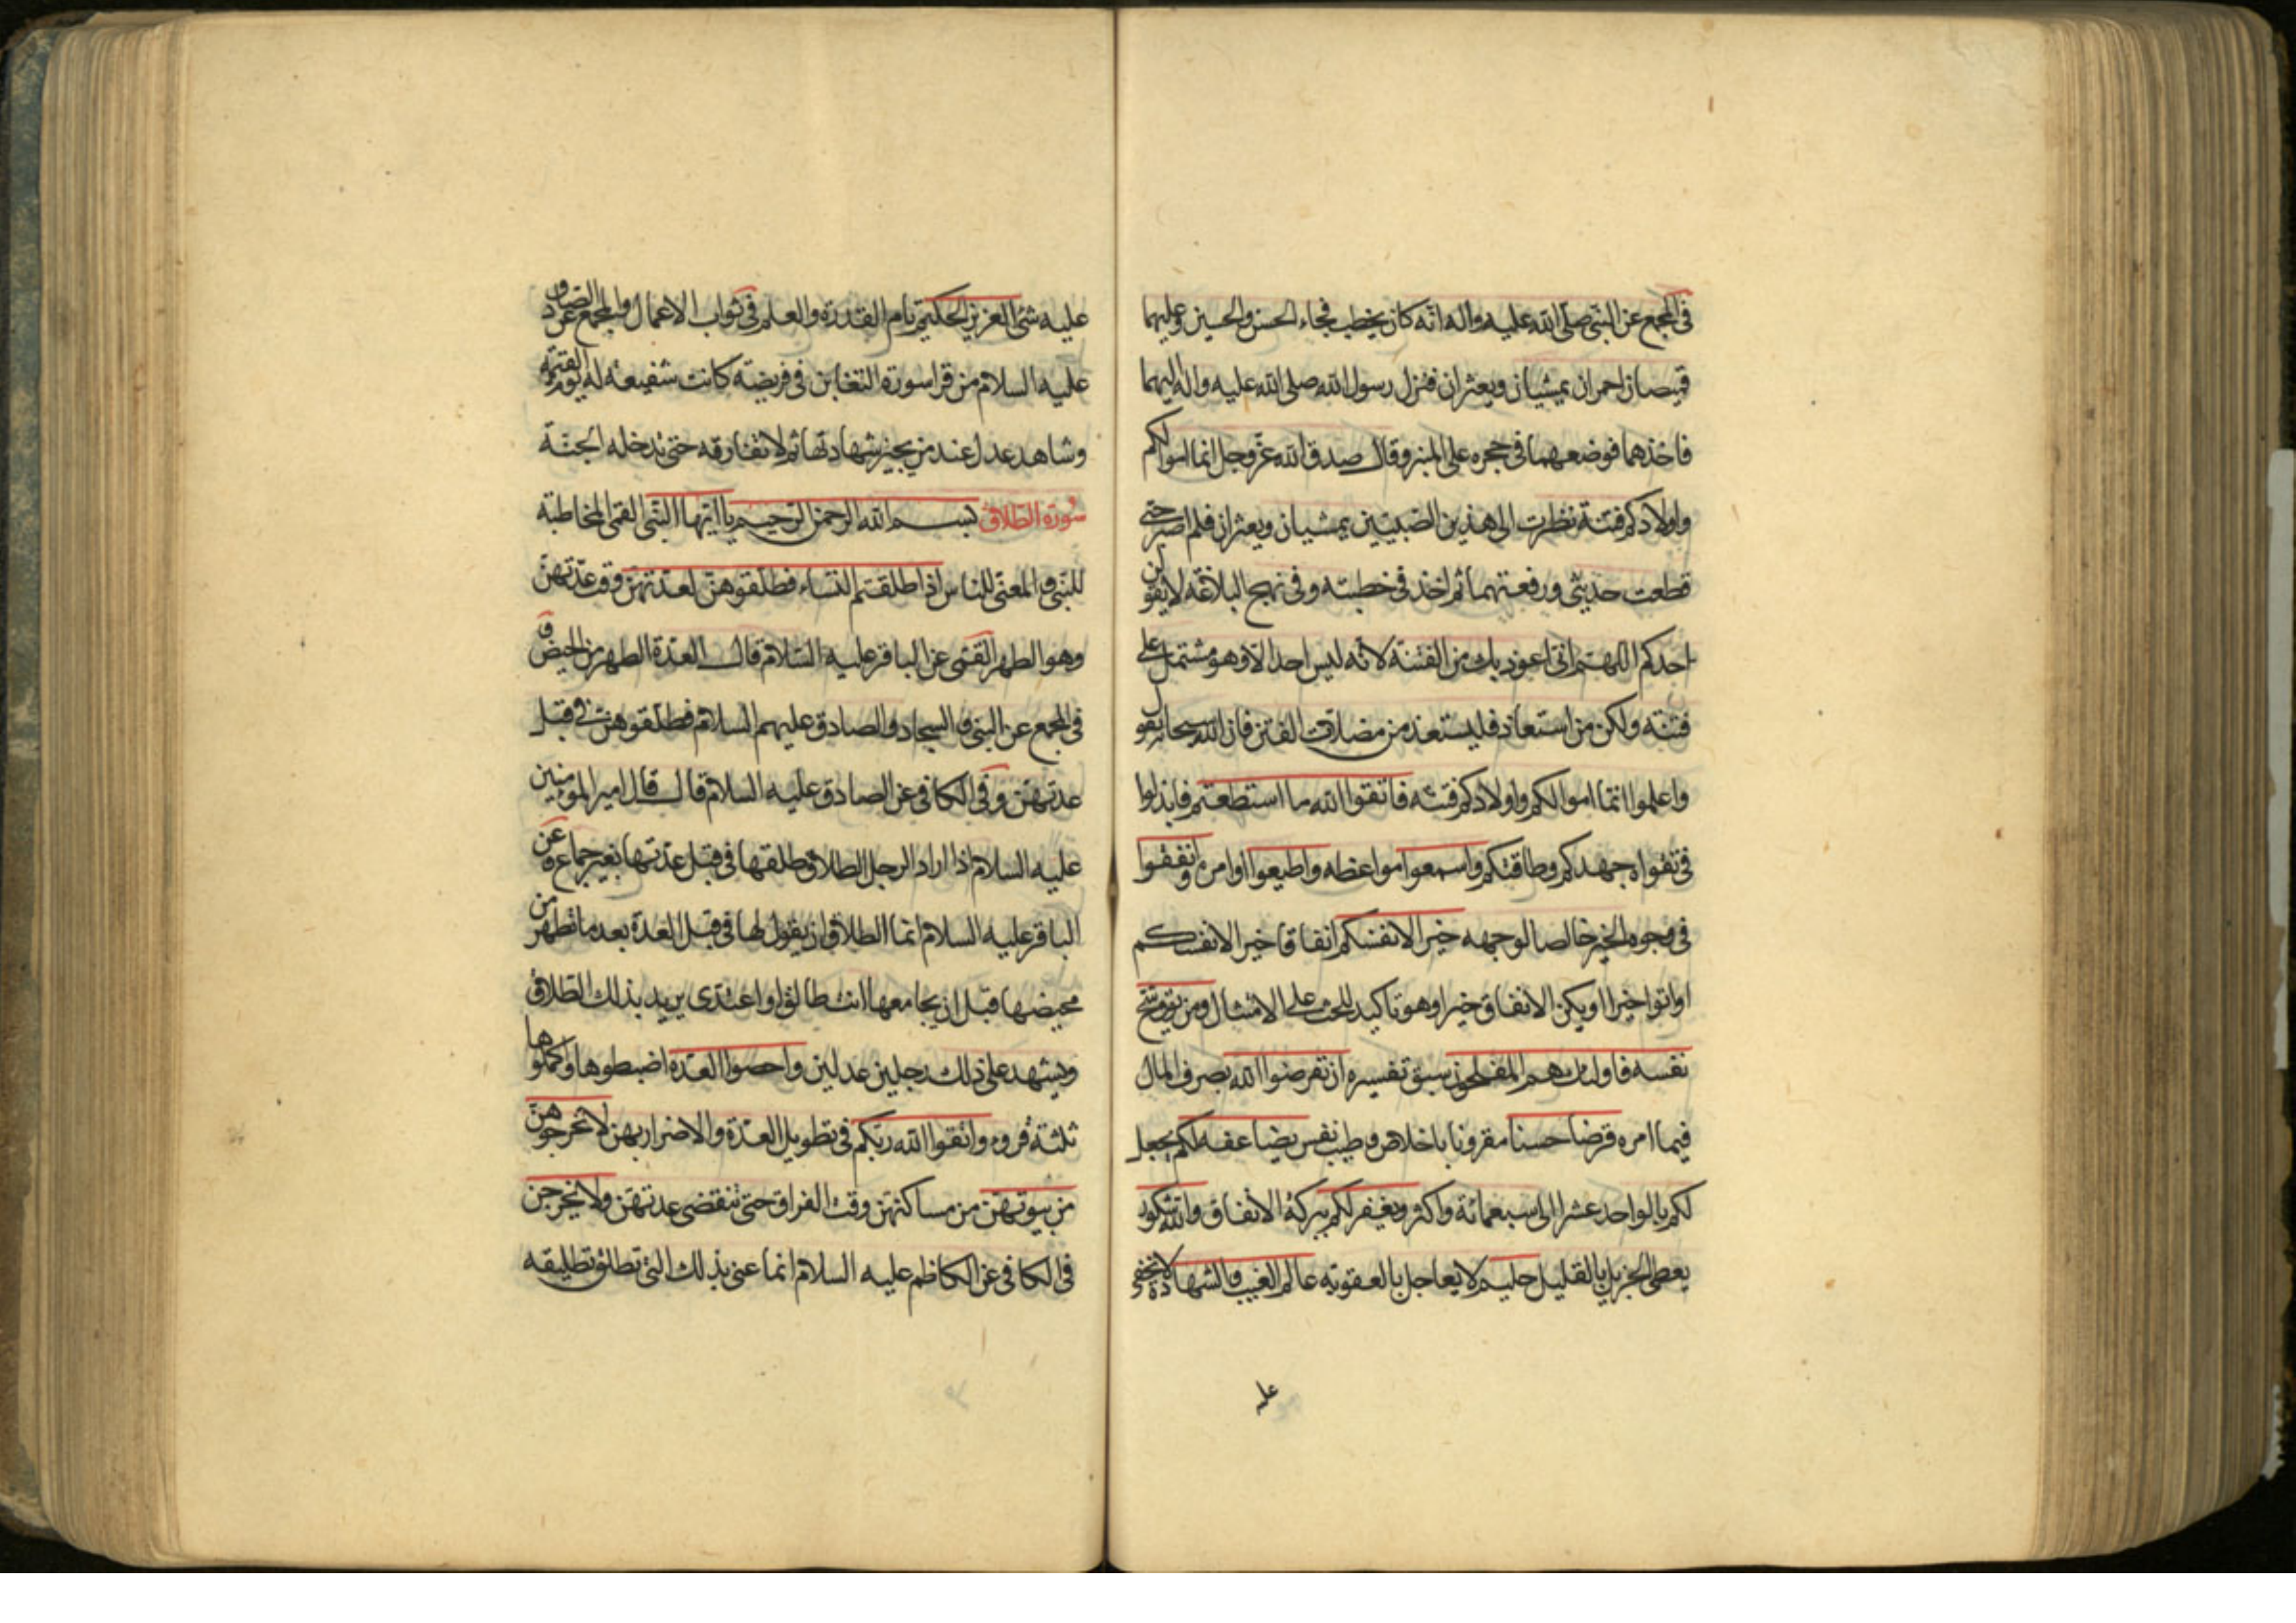 فى المجمع عن النبى صلى الله عليه واله انه كان يخطب فجاء الحسن والحسين وعليهما
قميصان احمران يمشيان ويعثران فنزل رسول الله صلى الله عليه واله اليهما
فاخذهما فوضعهما فى حجره على المنبر وقال صدق الله عز وجل انما اموالكم
واولادكم فتنة نظرت الى هذين الصبيين يمشيان ويعثران فلم اصبر حتى
قطعت حديثى ورفعتهما ثم اخذ فى خطبته وفى نهج البلاغه لا يقولن
احدكم اللهم انى اعوذ بك من الفتنة لانه ليس احد الا وهو مشتمل على
فتنة ولكن من استعاذ فليستعذ من مضلات الفتن فان الله سبحانه يقول
واعلموا انما اموالكم واولادكم فتنة فاتقوا الله ما استطعتم فابذلوا
فى تقواه جهدكم وطاقتكم واسمعوا مواعظه واطيعوا اوامره وانفقوا
فى وجوه الخير خالصا لوجهه خيرا لانفسكم انفاقا خيرا لانفسكم
او اتوا خيرا او يكن الانفاق خيرا وهو تاكيد للحث على الامتثال ومن يوق شح
نفسه فاولئك هم المفلحون سبق تفسيره ان تقرضوا الله بصرف المال
فيما امره قرضا حسنا مقرونا باخلاص وطيب نفس يضاعفه لكم يجعل
لكم بالواحد عشرا الى سبعمائة واكثر ويغفر لكم ببركة الانفاق والله شكور
يعطى الجزيل بالقليل حليم لا يعاجل بالعقوبة عالم الغيب والشهادة لا يخفى
عليه
عليه شئ العزيز الحكيم تام القدرة والعلم فى ثواب الاعمال والمجمع عن الصادق
عليه السلام من قرا سورة التغابن فى فريضته كانت شفيعة له يوم القيمة
وشاهد عدل عند من يجيز شهادتها ثم لا تفارقه حتى تدخله الجنة
سورة الطلاق بسم الله الرحمن الرحيم يا ايها النبى القمى المخاطبة
للنبى والمعنى للناس اذا طلقتم النساء فطلقوهن لعدتهن وقت عدتهن
وهو الطهر القمى عن الباقر عليه السلام قال العدة الطهر من الحيض و
فى المجمع عن النبى والسجاد والصادق عليهم السلام فطلقوهن فى قبل
عدتهن وفى الكافى عن الصادق عليه السلام قال قال امير المؤمنين
عليه السلام اذا اراد الرجل الطلاق طلقها فى قبل عدتها بغير جماع وعن
الباقر عليه السلام انما الطلاق ان يقول لها فى قبل العدة بعد ما تطهر من
محيضها قبل ان يجامعها انت طالق او اعتدى يريد بذلك الطلاق
ويشهد على ذلك رجلين عدلين واحصوا العدة اضبطوها واكملوها
ثلثة قروء واتقوا الله ربكم فى تطويل العدة والاضرار بهن لا تخرجوهن
من بيوتهن من مساكنهن وقت الفراق حتى تنقضى عدتهن ولا يخرجن
فى الكافى عن الكاظم عليه السلام انما عنى بذلك التى تطلق تطليقه